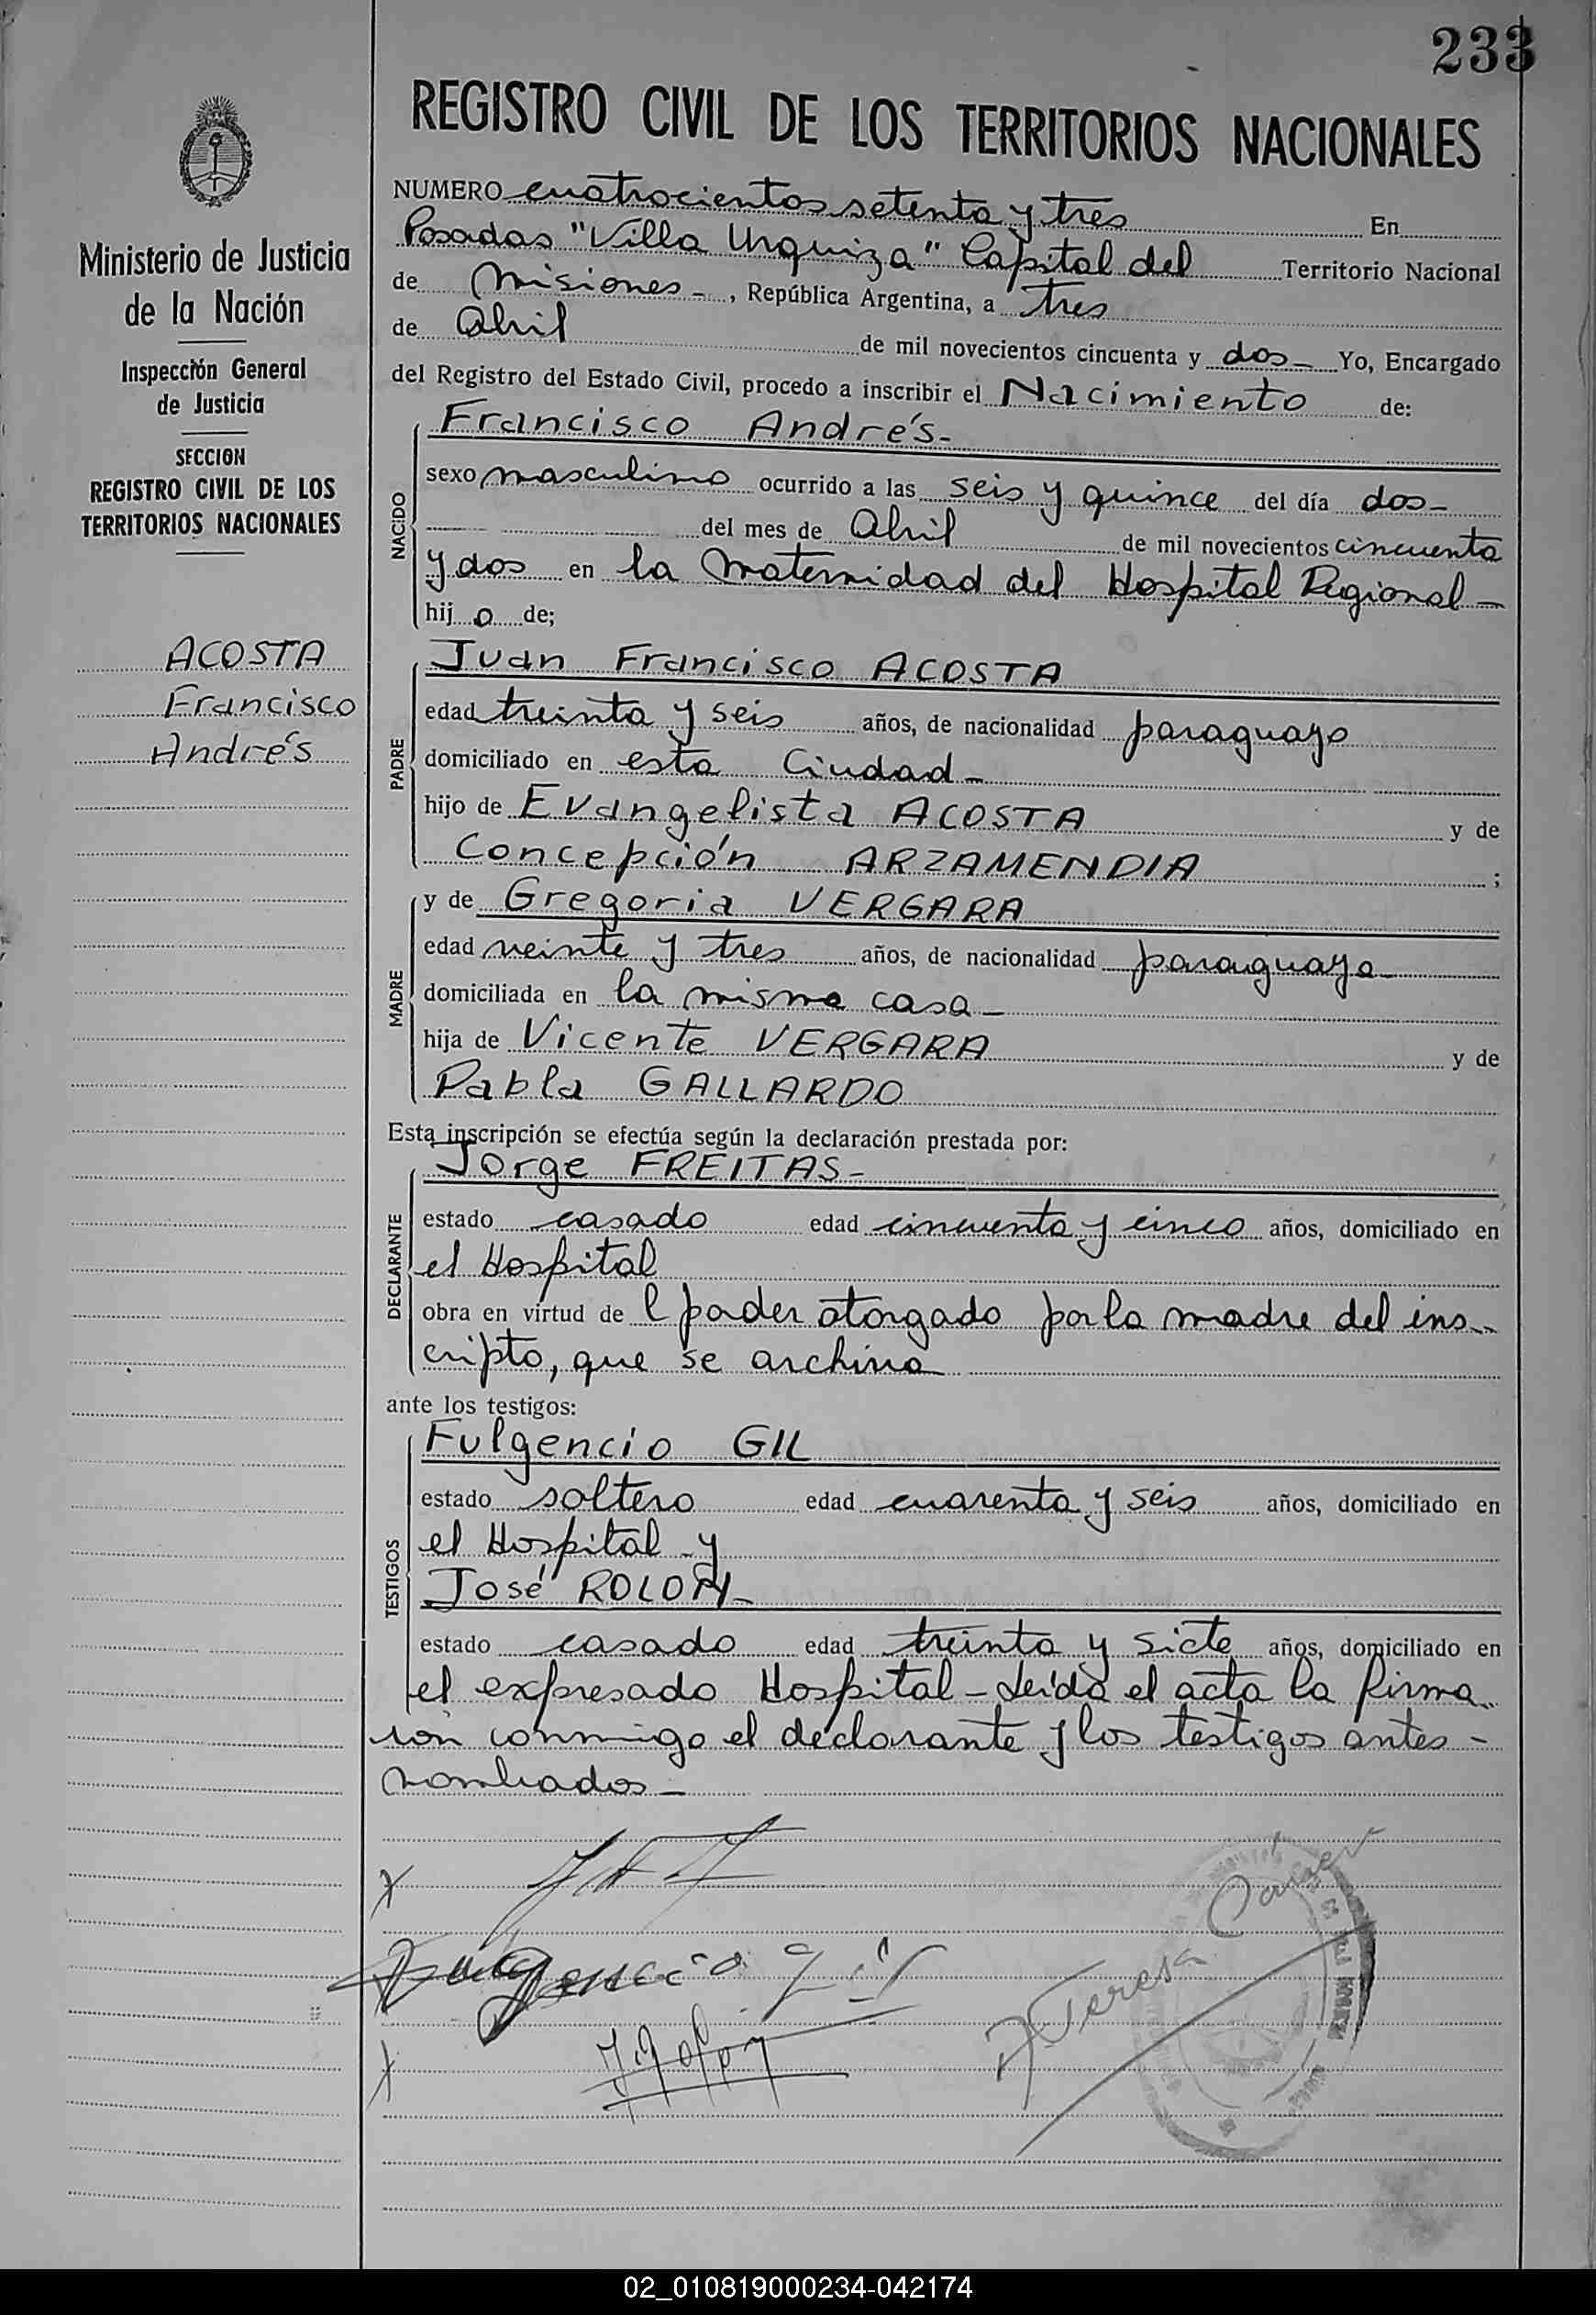 233
REGISTRO CIVIL DE LOS TERRITORIOS NACIONALES
Ministerio de Justicia
de la Nación
Inspección General
de Justicia
SECCION
REGISTRO CIVIL DE LOS
TERRITORIOS NACIONALES
ACOSTA
Francisco
Andrés
NUMERO cuatrocientos setenta y tres En
Posadas "Villa Urquiza" Capital del Territorio Nacional
de Misiones-, República Argentina, a tres
de Abril de mil novecientos cincuenta y dos- Yo, Encargado
del Registro del Estado Civil, procedo a inscribir el Nacimiento de:
NACIDO
Francisco Andrés-
sexo masculino ocurrido a las seis y quince del día dos-
del mes de Abril de mil novecientos cincuenta
y dos en la Maternidad del Hospital Regional-
hij o de;
PADRE
Juan Francisco ACOSTA
edad treinta y seis años, de nacionalidad paraguayo
domiciliado en esta Ciudad-
hijo de Evangelista ACOSTA y de
Concepción ARZAMENDIA ;
MADRE
y de Gregoria VERGARA
edad veinte y tres años, de nacionalidad paraguaya
domiciliada en la misma casa-
hija de Vicente VERGARA y de
Pabla GALLARDO
Esta inscripción se efectúa según la declaración prestada por:
DECLARANTE
Jorge FREITAS-
estado casado edad cincuenta y cinco años, domiciliado en
el Hospital
obra en virtud de l poder otorgado por la madre del ins-
cripto, que se archiva
ante los testigos:
TESTIGOS
Fulgencio GIL
estado soltero edad cuarenta y seis años, domiciliado en
el Hospital y
José ROLON-
estado casado edad treinta y siete años, domiciliado en
el expresado Hospital- Leída el acta la firma-
ron conmigo el declarante y los testigos antes-
nombrados-
Fulgencio Gil
J. Rolón
Teresa
02_010819000234-042174